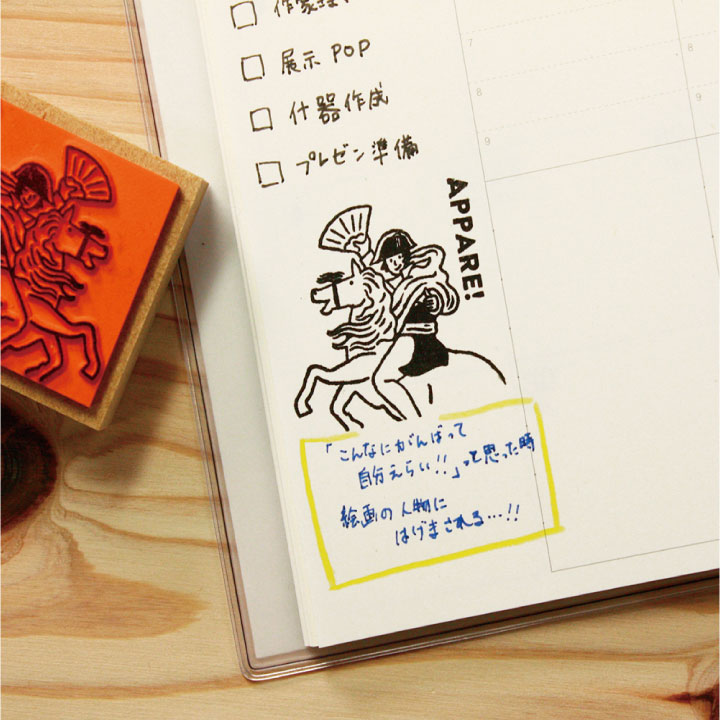 □ 作家
□ 展示 POP
□ 什器作成
□ プレゼン準備
APPARE!
「こんなにがんばって
自分えらい!!」って思った時
絵画の人物に
はげまされる…!!
7
8
9
8
9